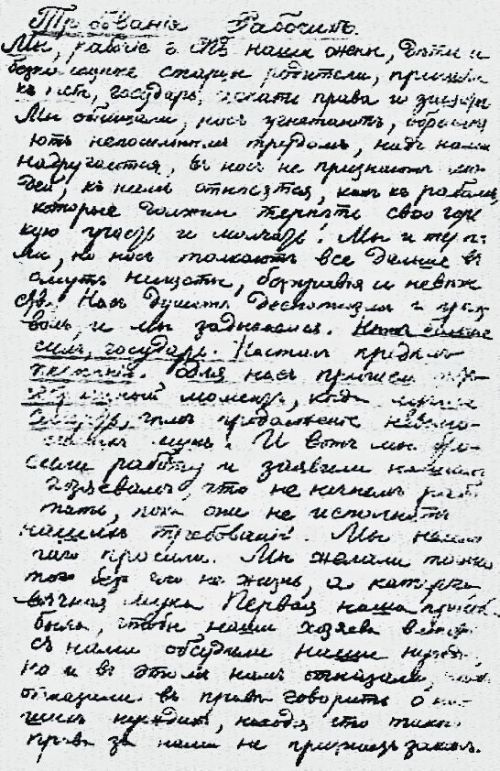 Требованія Рабочихъ.
Мы, рабочіе г. наши жены, дѣти и
старцы родители, пришли
къ государь, искати права и защиты
Мы обнищали, насъ угнетаютъ, обременя
ютъ непосильнымъ трудомъ, надъ нами
надругаются, въ насъ не признаютъ лю
дей, къ намъ относятся, какъ къ рабамъ,
которые должны терпѣть свою горь
кую участь и молчать. Мы и терпѣ
ли, но насъ толкаютъ все дальше въ
омутъ нищеты, безправья и невѣж
ства. Насъ душитъ деспотизмъ и произ
волъ, и мы задыхаемся. Нѣтъ больше
силъ, государь. Насталъ предѣлъ
терпѣнія. Для насъ пришелъ
моментъ, когда лучше
смерть, чѣмъ продолженіе невыно
симыхъ мукъ. И вотъ мы бро
сили работу и заявили нашимъ
хозяевамъ, что не начнемъ рабо
тать, пока они не исполнятъ
нашихъ требованій. Мы
чего просили. Мы желали только
того безъ чего не жизнь, а каторга
вѣчная мука Первая наша просьба
была, чтобы наши хозяева вмѣстѣ
съ нами обсудили наши нужды,
но и въ этомъ намъ отказали,
отказали въ правѣ говорить о на
шихъ нуждахъ, находя что такого
права за нами не признаетъ законъ.